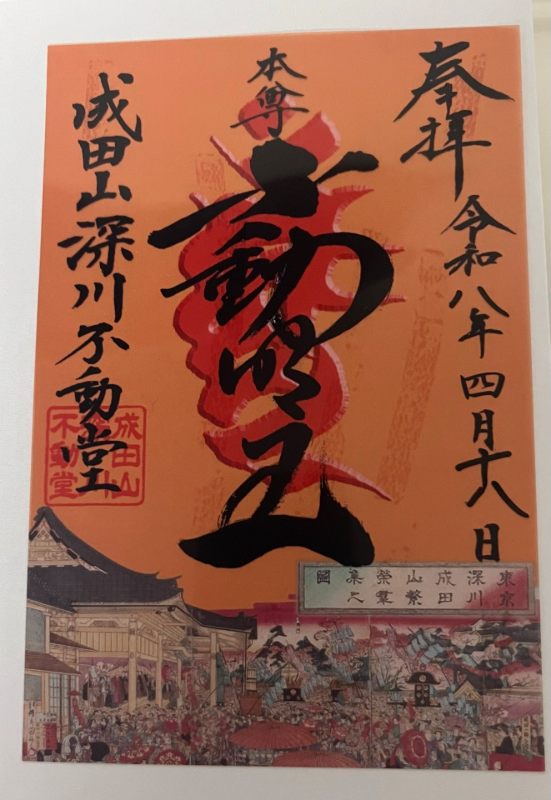 奉拝
令和八年四月十八日
本尊
不動明王
成田山深川不動堂
成田山
不動堂
東京
深川
成田
山繁
榮羣
集之
圖